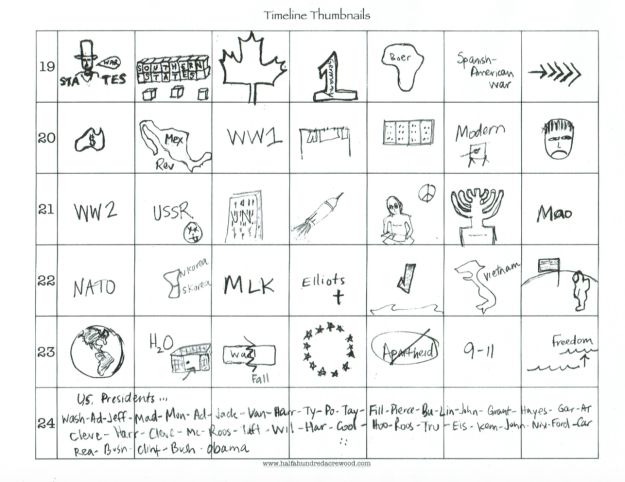 Timeline Thumbnails
19
WAR
STA TES
SOUTHERN
STATES
1
Boer
Spanish-
American
war
20
$
Mex
Rev
WW1
Modern
21
WW2
USSR
UN
Mao
22
NATO
N Korea
S Korea
MLK
Elliots
Vietnam
23
H2O
Wall
Fall
Apartheid
9-11
Freedom
24
U.S. Presidents...
Wash-Ad-Jeff-Mad-Mon-Ad-Jack-Van-Harr-Ty-Po-Tay-Fill-Pierce-Bu-Lin-John-Grant-Hayes-Gar-Ar
Cleve-Harr-Cleve-Mc-Roos-Taft-Wil-Har-Cool-Hoo-Roos-Tru-Eis-Ken-John-Nix-Ford-Car
Rea-Bush-Clint-Bush-Obama
www.halfahundredacrewood.com